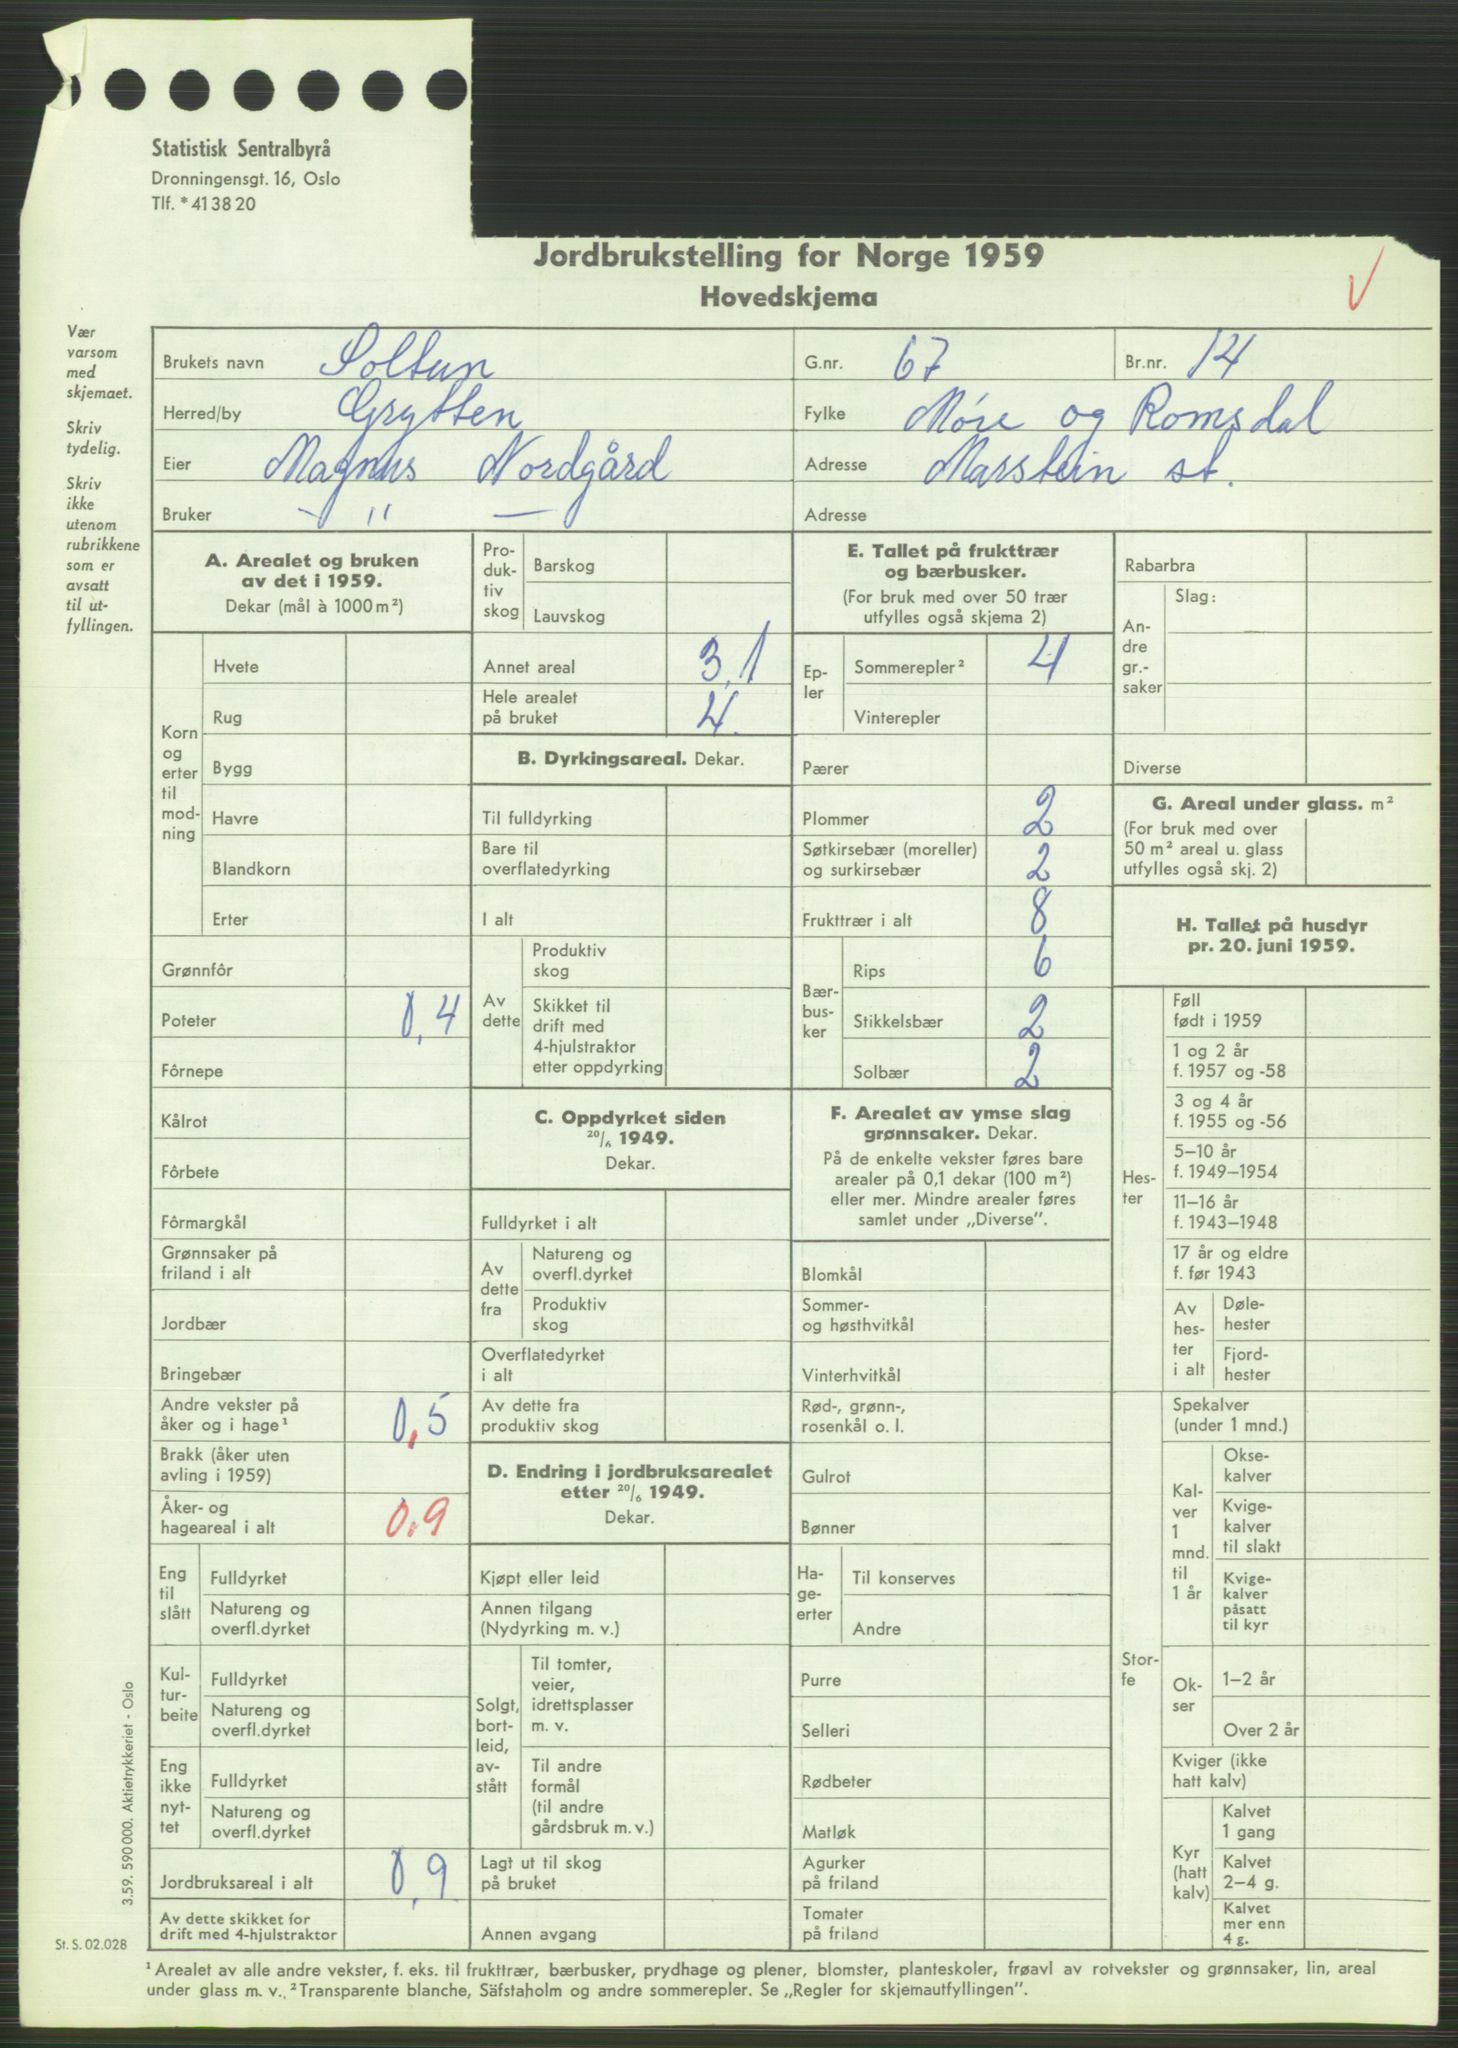 Statistisk Sentralbyrå
Dronningensgt. 16, Oslo
Tlf. * 41 38 20
Jordbrukstelling for Norge 1959
Hovedskjema
V
Vær
varsom
med
skjemaet.
Skriv
tydelig.
Skriv
ikke
utenom
rubrikkene
som er
avsatt
til ut-
fyllingen.
Brukets navn Soltun G.nr. 67 Br.nr. 14
Herred/by Grytten Fylke Møre og Romsdal
Eier Magnus Nordgård Adresse Marstein st.
Bruker – " – Adresse
A. Arealet og bruken
av det i 1959.
Dekar (mål à 1000 m²)
Korn
og
erter
til
mod-
ning
Hvete
Rug
Bygg
Havre
Blandkorn
Erter
Grønnfôr
Poteter 0,4
Fôrnepe
Kålrot
Fôrbete
Fôrmargkål
Grønnsaker på
friland i alt
Jordbær
Bringebær
Andre vekster på
åker og i hage¹ 0,5
Brakk (åker uten
avling i 1959)
Åker- og
hageareal i alt 0,9
Eng
til
slått
Fulldyrket
Natureng og
overfl.dyrket
Kul-
tur-
beite
Fulldyrket
Natureng og
overfl.dyrket
Eng
ikke
nyt-
tet
Fulldyrket
Natureng og
overfl.dyrket
Jordbruksareal i alt 0,9
Av dette skikket for
drift med 4-hjulstraktor
Pro-
duk-
tiv
skog
Barskog
Lauvskog
Annet areal 3,1
Hele arealet
på bruket 4.
B. Dyrkingsareal. Dekar.
Til fulldyrking
Bare til
overflatedyrking
I alt
Av
dette
Produktiv
skog
Skikket til
drift med
4-hjulstraktor
etter oppdyrking
C. Oppdyrket siden
20/6 1949.
Dekar.
Fulldyrket i alt
Av
dette
fra
Natureng og
overfl.dyrket
Produktiv
skog
Overflatedyrket
i alt
Av dette fra
produktiv skog
D. Endring i jordbruksarealet
etter 20/6 1949.
Dekar.
Kjøpt eller leid
Annen tilgang
(Nydyrking m. v.)
Solgt,
bort-
leid,
av-
stått
Til tomter,
veier,
idrettsplasser
m. v.
Til andre
formål
(til andre
gårdsbruk m. v.)
Lagt ut til skog
på bruket
Annen avgang
E. Tallet på frukttrær
og bærbusker.
(For bruk med over 50 trær
utfylles også skjema 2)
Ep-
ler
Sommerepler² 4
Vinterepler
Pærer
Plommer 2
Søtkirsebær (moreller)
og surkirsebær 2
Frukttrær i alt 8
Bær-
bus-
ker
Rips 6
Stikkelsbær 2
Solbær 2
F. Arealet av ymse slag
grønnsaker. Dekar.
På de enkelte vekster føres bare
arealer på 0,1 dekar (100 m²)
eller mer. Mindre arealer føres
samlet under „Diverse”.
Blomkål
Sommer-
og høsthvitkål
Vinterhvitkål
Rød-, grønn-,
rosenkål o. l.
Gulrot
Bønner
Ha-
ge-
erter
Til konserves
Andre
Purre
Selleri
Rødbeter
Matløk
Agurker
på friland
Tomater
på friland
Rabarbra
An-
dre
gr.-
saker
Slag:
Diverse
G. Areal under glass. m²
(For bruk med over
50 m² areal u. glass
utfylles også skj. 2)
H. Tallet på husdyr
pr. 20. juni 1959.
Hes-
ter
Føll
født i 1959
1 og 2 år
f. 1957 og -58
3 og 4 år
f. 1955 og -56
5–10 år
f. 1949–1954
11–16 år
f. 1943–1948
17 år og eldre
f. før 1943
Av
hes-
ter
i alt
Døle-
hester
Fjord-
hester
Stor-
fe
Spekalver
(under 1 mnd.)
Kal-
ver
1
mnd.
til
1 år
Okse-
kalver
Kvige-
kalver
til slakt
Kvige-
kalver
påsatt
til kyr
Ok-
ser
1–2 år
Over 2 år
Kviger (ikke
hatt kalv)
Kyr
(hatt
kalv)
Kalvet
1 gang
Kalvet
2–4 g.
Kalvet
mer enn
4 g.
3.59. 590 000. Aktietrykkeriet - Oslo
St. S. 02.028
¹ Arealet av alle andre vekster, f. eks. til frukttrær, bærbusker, prydhage og plener, blomster, planteskoler, frøavl av rotvekster og grønnsaker, lin, areal
under glass m. v. ² Transparente blanche, Säfstaholm og andre sommerepler. Se „Regler for skjemautfyllingen”.